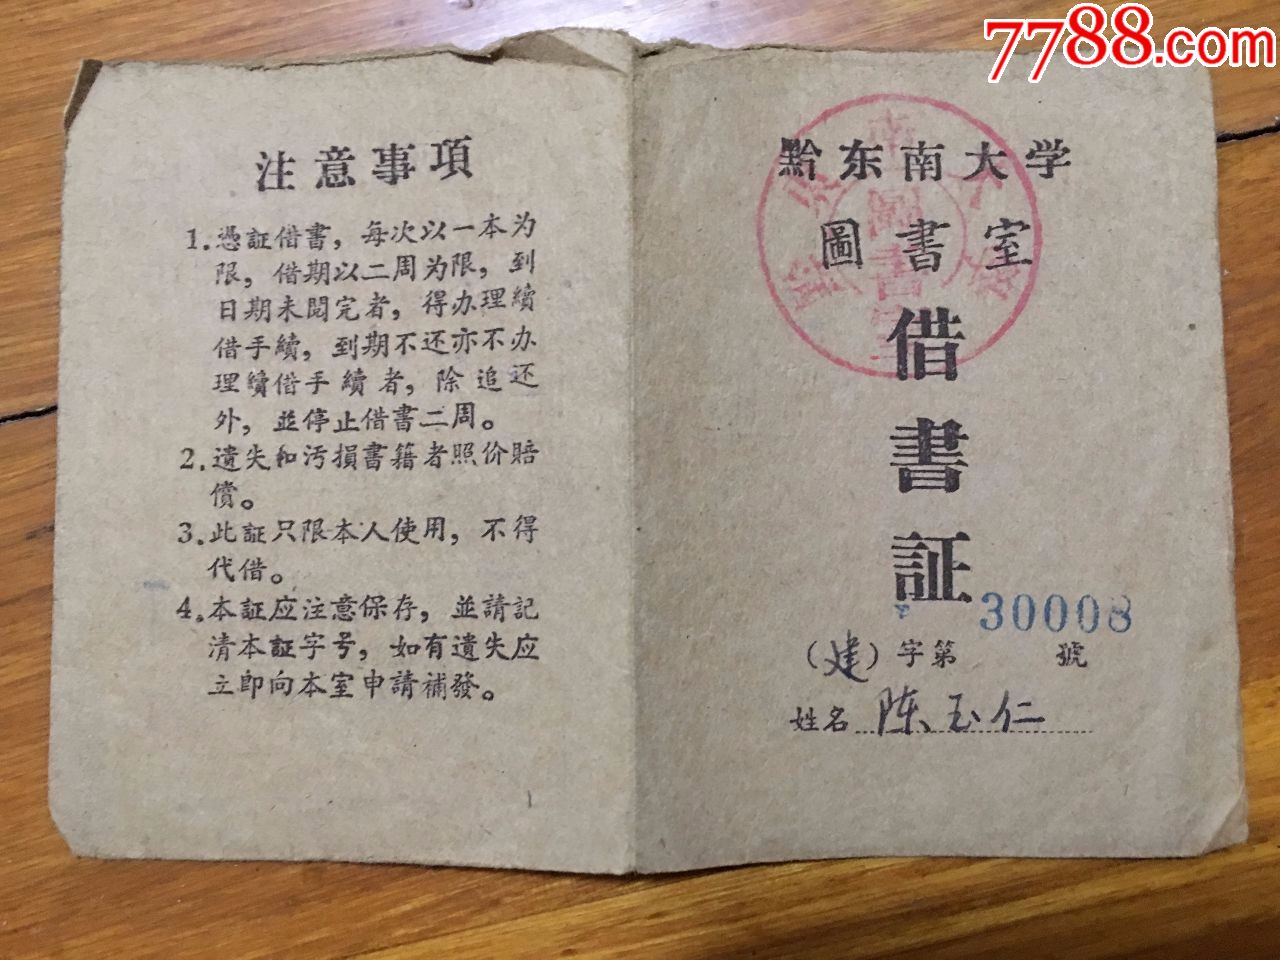 7788.com
注意事項
1.憑証借書，每次以一本为
限，借期以二周为限，到
日期未閱完者，得办理續
借手續，到期不还亦不办
理續借手續者，除追还
外，並停止借書二周。
2.遺失和污損書籍者照价賠
償。
3.此証只限本人使用，不得
代借。
4.本証应注意保存，並請記
清本証字号，如有遺失应
立即向本室申請補發。
黔东南大学
圖書室
借
書
証
30008
（建）字第 號
姓名 陈玉仁
黔东南大学
圖書室